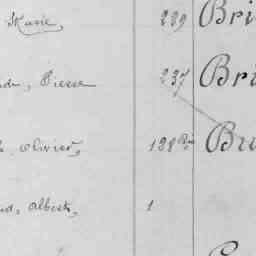 Marie, 229 Bri
Pierre 237 Bri
Olivier, 188 Bis Bru
Albert, 1